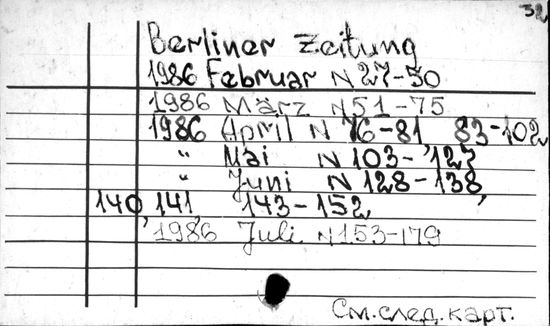 32
Berliner Zeitung
1986 Februar N 27-50
1986 März N 51-75
1986 April N 76-81 83-102
" Mai N 103-127
" Juni N 128-138,
140, 141, 143-152
1986 Juli N 153-179
См. след. карт.